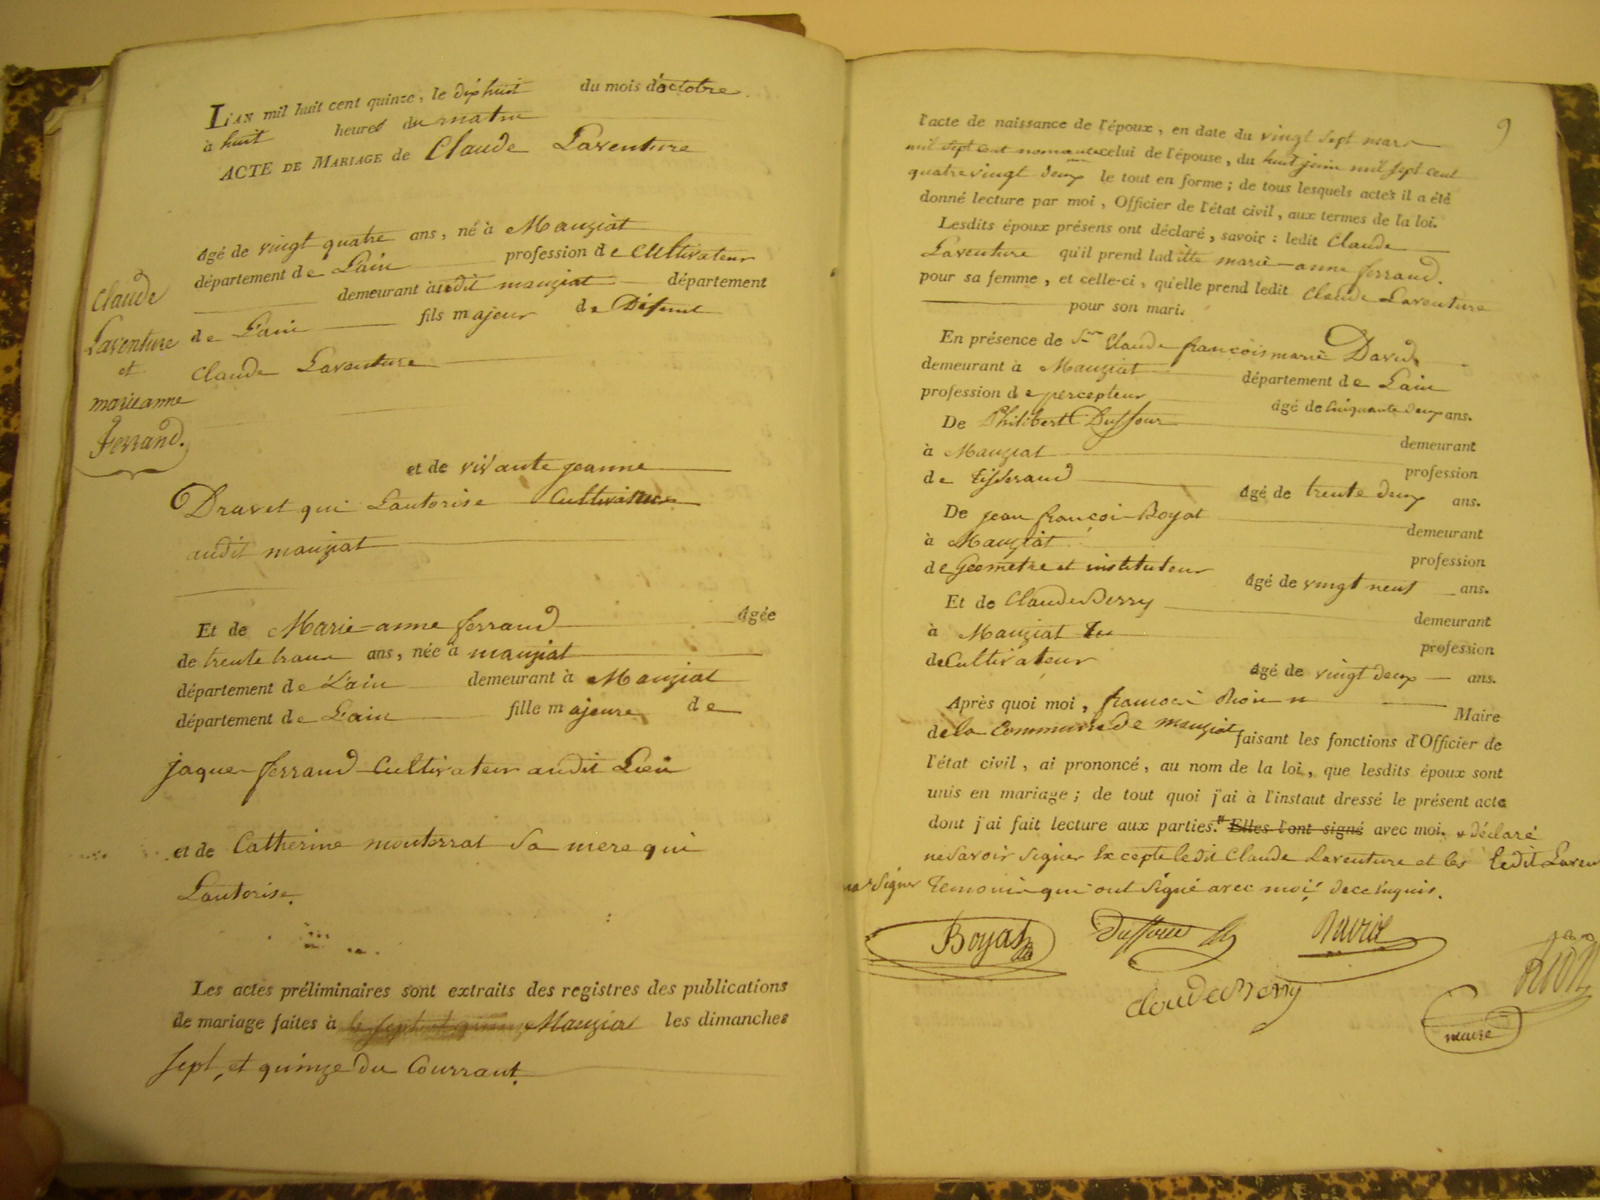 L'AN mil huit cent quinze, le dixhuit du mois d'octobre.
à huit heures du matin
ACTE DE MARIAGE de Claude Laventure
âgé de vingt quatre ans, né à Mauziat
département de L'ain profession de Cultivateur
demeurant audit mauziat département
de L'ain fils majeur de Défunt
Claude Laventure
Claude
Laventure
et
marieanne
Ferrand.
et de vivante jeanne
Dravet qui L'autorise Cultivatrice
audit mauziat
Et de Marie-anne ferrand âgée
de trente trois ans, née à mauziat
département de L'ain demeurant à Mauziat
département de L'ain fille majeure de
jaque ferrand Cultivateur audit Lieu
et de Catherine monterrat Sa mere qui
L'autorise.
Les actes préliminaires sont extraits des registres des publications
de mariage faites à Mauziat les dimanches
sept, et quinze du Courrant.
9
l'acte de naissance de l'époux, en date du vingt sept mars
mil sept cent nonante celui de l'épouse, du huit juin mil sept cent
quatrevingt deux le tout en forme; de tous lesquels actes il a été
donné lecture par moi, Officier de l'état civil, aux termes de la loi.
Lesdits époux présens ont déclaré, savoir: ledit Claude
Laventure qu'il prend ladite marie-anne ferrand.
pour sa femme, et celle-ci, qu'elle prend ledit Claude Laventure
pour son mari.
En présence de Sr Claude françois marie David
demeurant à Mauziat département de L'ain
profession de percepteur âgé de Cinquante deux ans.
De Philibert Duffour demeurant
à Mauziat profession
de tisserand âgé de trente deux ans.
De jean françoi Boyat demeurant
à Mauziat profession
de Géometre et instituteur âgé de vingt neuf ans.
Et de Claude Berry demeurant
à Mauziat profession
de Cultivateur âgé de vingt deux ans.
Après quoi moi, françoi Maire
de la Commune de mauziat faisant les fonctions d'Officier de
l'état civil, ai prononcé, au nom de la loi, que lesdits époux sont
unis en mariage; de tout quoi j'ai à l'instaut dressé le présent acte
dont j'ai fait lecture aux parties. Elles l'ont signé avec moi. déclaré
ne Savoir Signer Excepte ledit Claude Laventure et les ledit Laven
Signer Temoin qui ont Signé avec moi, de ce Enquis.
Boyat Duffour David
Claude Berry
maire